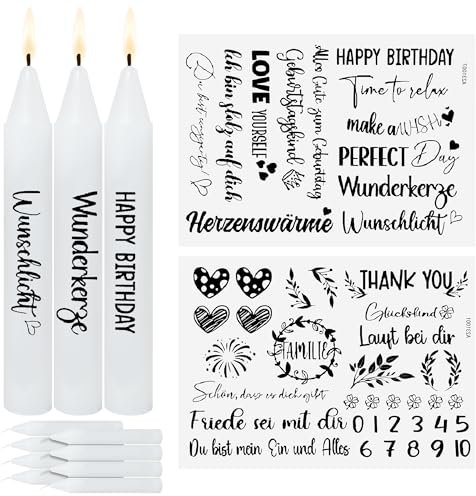 Wunschlicht
Wunderkerze
HAPPY BIRTHDAY
Du bist einzigartig!
Ich bin stolz auf dich
LOVE
YOURSELF
Geburtstagskind
Alles Gute zum Geburtstag
HAPPY BIRTHDAY
Time to relax
make a WISH
PERFECT Day
Wunderkerze
Herzenswärme
Wunschlicht
THANK YOU
Glückskind
Läuft bei dir
FAMILIE
Schön, dass es dich gibt
Friede sei mit dir
0 1 2 3 4 5
Du bist mein Ein und Alles
6 7 8 9 10